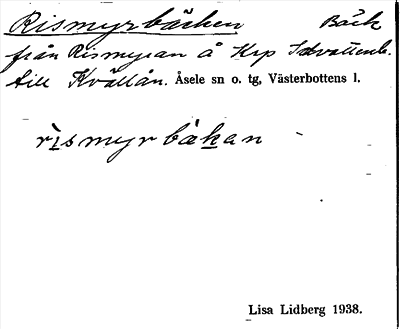 Rismyrbäcken Bäck
från Rismyran å Krp Idvattenb.
till Kvällån. Åsele sn o. tg, Västerbottens l.
rismyrbäkan
Lisa Lidberg 1938.